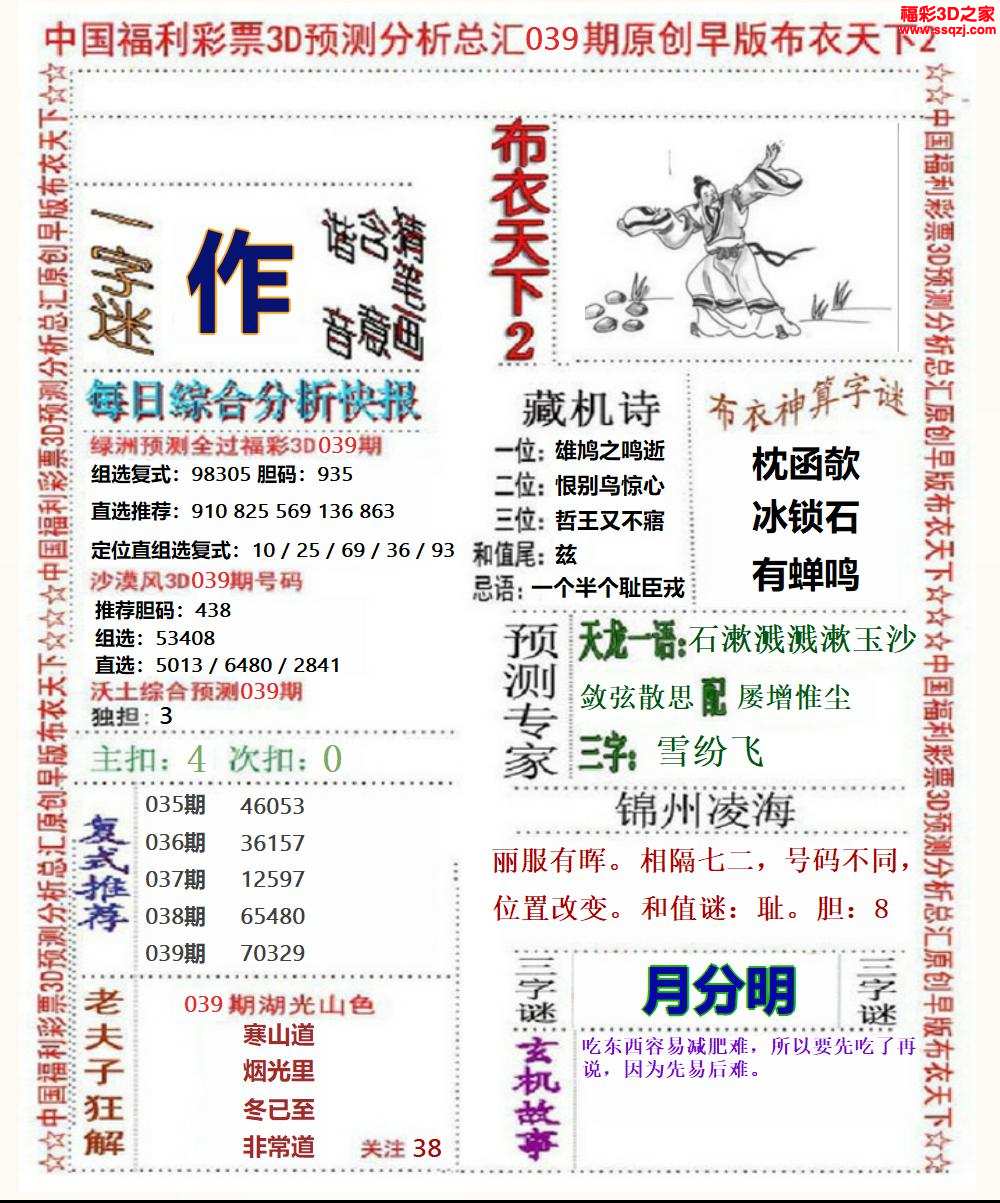 福彩3D之家
www.ssqzj.com
中国福利彩票3D预测分析总汇039期原创早版布衣天下2
☆☆中国福利彩票3D预测分析总汇原创早版布衣天下☆☆☆中国福利彩票3D预测分析总汇原创早版布衣天下☆☆
一字迷
作
猜笔画
含意
谐音
布衣天下2
每日综合分析快报
绿洲预测全过福彩3D039期
组选复式：98305 胆码：935
直选推荐：910 825 569 136 863
定位直组选复式：10 / 25 / 69 / 36 / 93
沙漠风3D039期号码
推荐胆码：438
组选：53408
直选：5013 / 6480 / 2841
沃土综合预测039期
独担：3
主扣：4 次扣：0
复式推荐
035期 46053
036期 36157
037期 12597
038期 65480
039期 70329
老夫子狂解
039期湖光山色
寒山道
烟光里
冬已至
非常道
关注 38
藏机诗
一位：雄鸠之鸣逝
二位：恨别鸟惊心
三位：哲王又不寤
和值尾：兹
忌语：一个半个耻臣戎
布衣神算字谜
枕函欹
冰锁石
有蝉鸣
预测专家
天龙一语：石漱溅溅漱玉沙
敛弦散思 配 屡增惟尘
三字：雪纷飞
锦州凌海
丽服有晖。相隔七二，号码不同，
位置改变。和值谜：耻。胆：8
三字谜
月分明
三字谜
玄机故事
吃东西容易减肥难，所以要先吃了再
说，因为先易后难。
☆☆中国福利彩票3D预测分析总汇原创早版布衣天下☆☆☆中国福利彩票3D预测分析总汇原创早版布衣天下☆☆